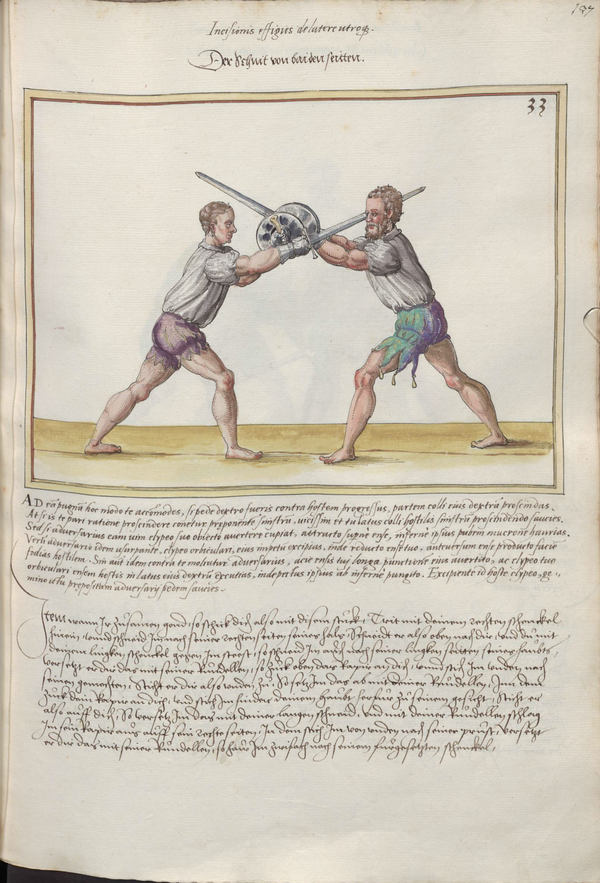 137
Incisionis effigies de latere utroq.
Der Schnit von baiden seitten.
33
AD eā pugnā hoc modo te accomodes, si pede dextro fueris contra hostem progressus, partem colli eius dextrā proscindas.
At si is te pari ratione proscindere conetur preponente sinistrū, vicissim et tu latus colli hostilis sinistrū proscindendo saucies.
Sed si adversarius eam vim clypeo suo obiecto avertere cupiat, attracto ense, inferne ipsius pubem mucrone haurias.
Verū adversario idem usurpante, clypeo orbiculari, eius impetū excipias, inde reducto ense tuo, antrorsum eum producto facie
hostilem. Sin aūt idem contra te molietur adversarius, acie ensis tui longa punctione eius avertito, ac clypeo tuo
orbiculari ensem hostis in latus eius dextrū excutias, inde pectus ipsius ab inferne pungito. Excipiente id hoste clypeo, ge-
mino ictu prepositum adversarij pedem saucies.
Item wann Jr zusamen gond, so schick dich also mit disem stuckh, Trit mit deinem rechten schenckel
hinein, unnd schneid Jm nach seiner rechten seiten seines hals, Schneidt er also oben nach dir, und du mit
deinem lingken schenckel gegen Jm steest, so schneid Jm auch nach seiner lingken seitten seines haubts,
versetzt er dir das mit seiner Rundellen, so zuck oben dein rapier an dich, unnd stich Jm unden nach
seinen gemechten, Sticht er dir also unden zu, So setz Jm das ab mit deiner Rundellen, Inn dem
zuck dein Rapier an dich, und stich Jm under deinem haubt herfur zu seinem gesicht, Sticht er
also auff dich, So versetz Jm das mit deiner langen schneid, und mit deiner Rundellen schlag
Jm sein rapier aus auff sein rechte seiten, Jn dem stich Jm von unden nach seiner prust, versetzt
er dir das mit seiner Rundellen, so haw Jm zwifach nach seinem furgesetzten schenckel,